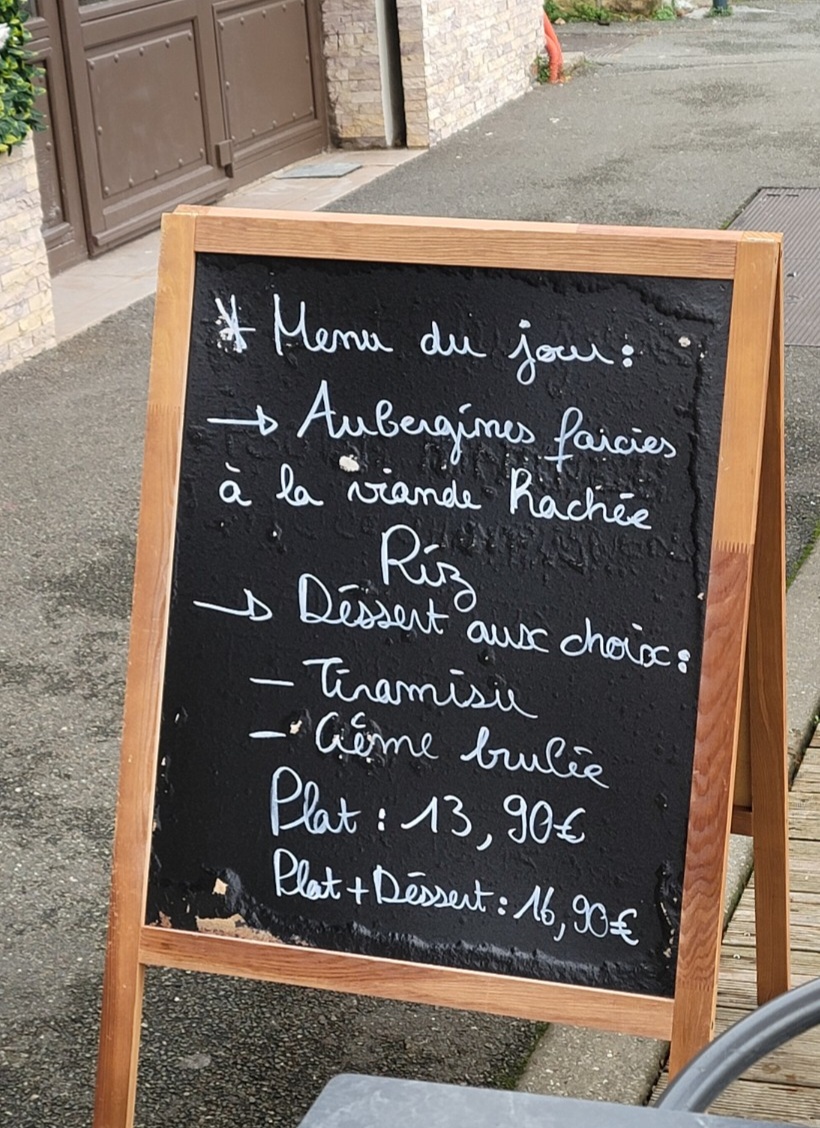 * Menu du jour:
→ Aubergines farcies
à la viande hachée
Riz
→ Déssert aux choix:
– Tiramisu
– Crême brulée
Plat : 13,90€
Plat + Déssert : 16,90€